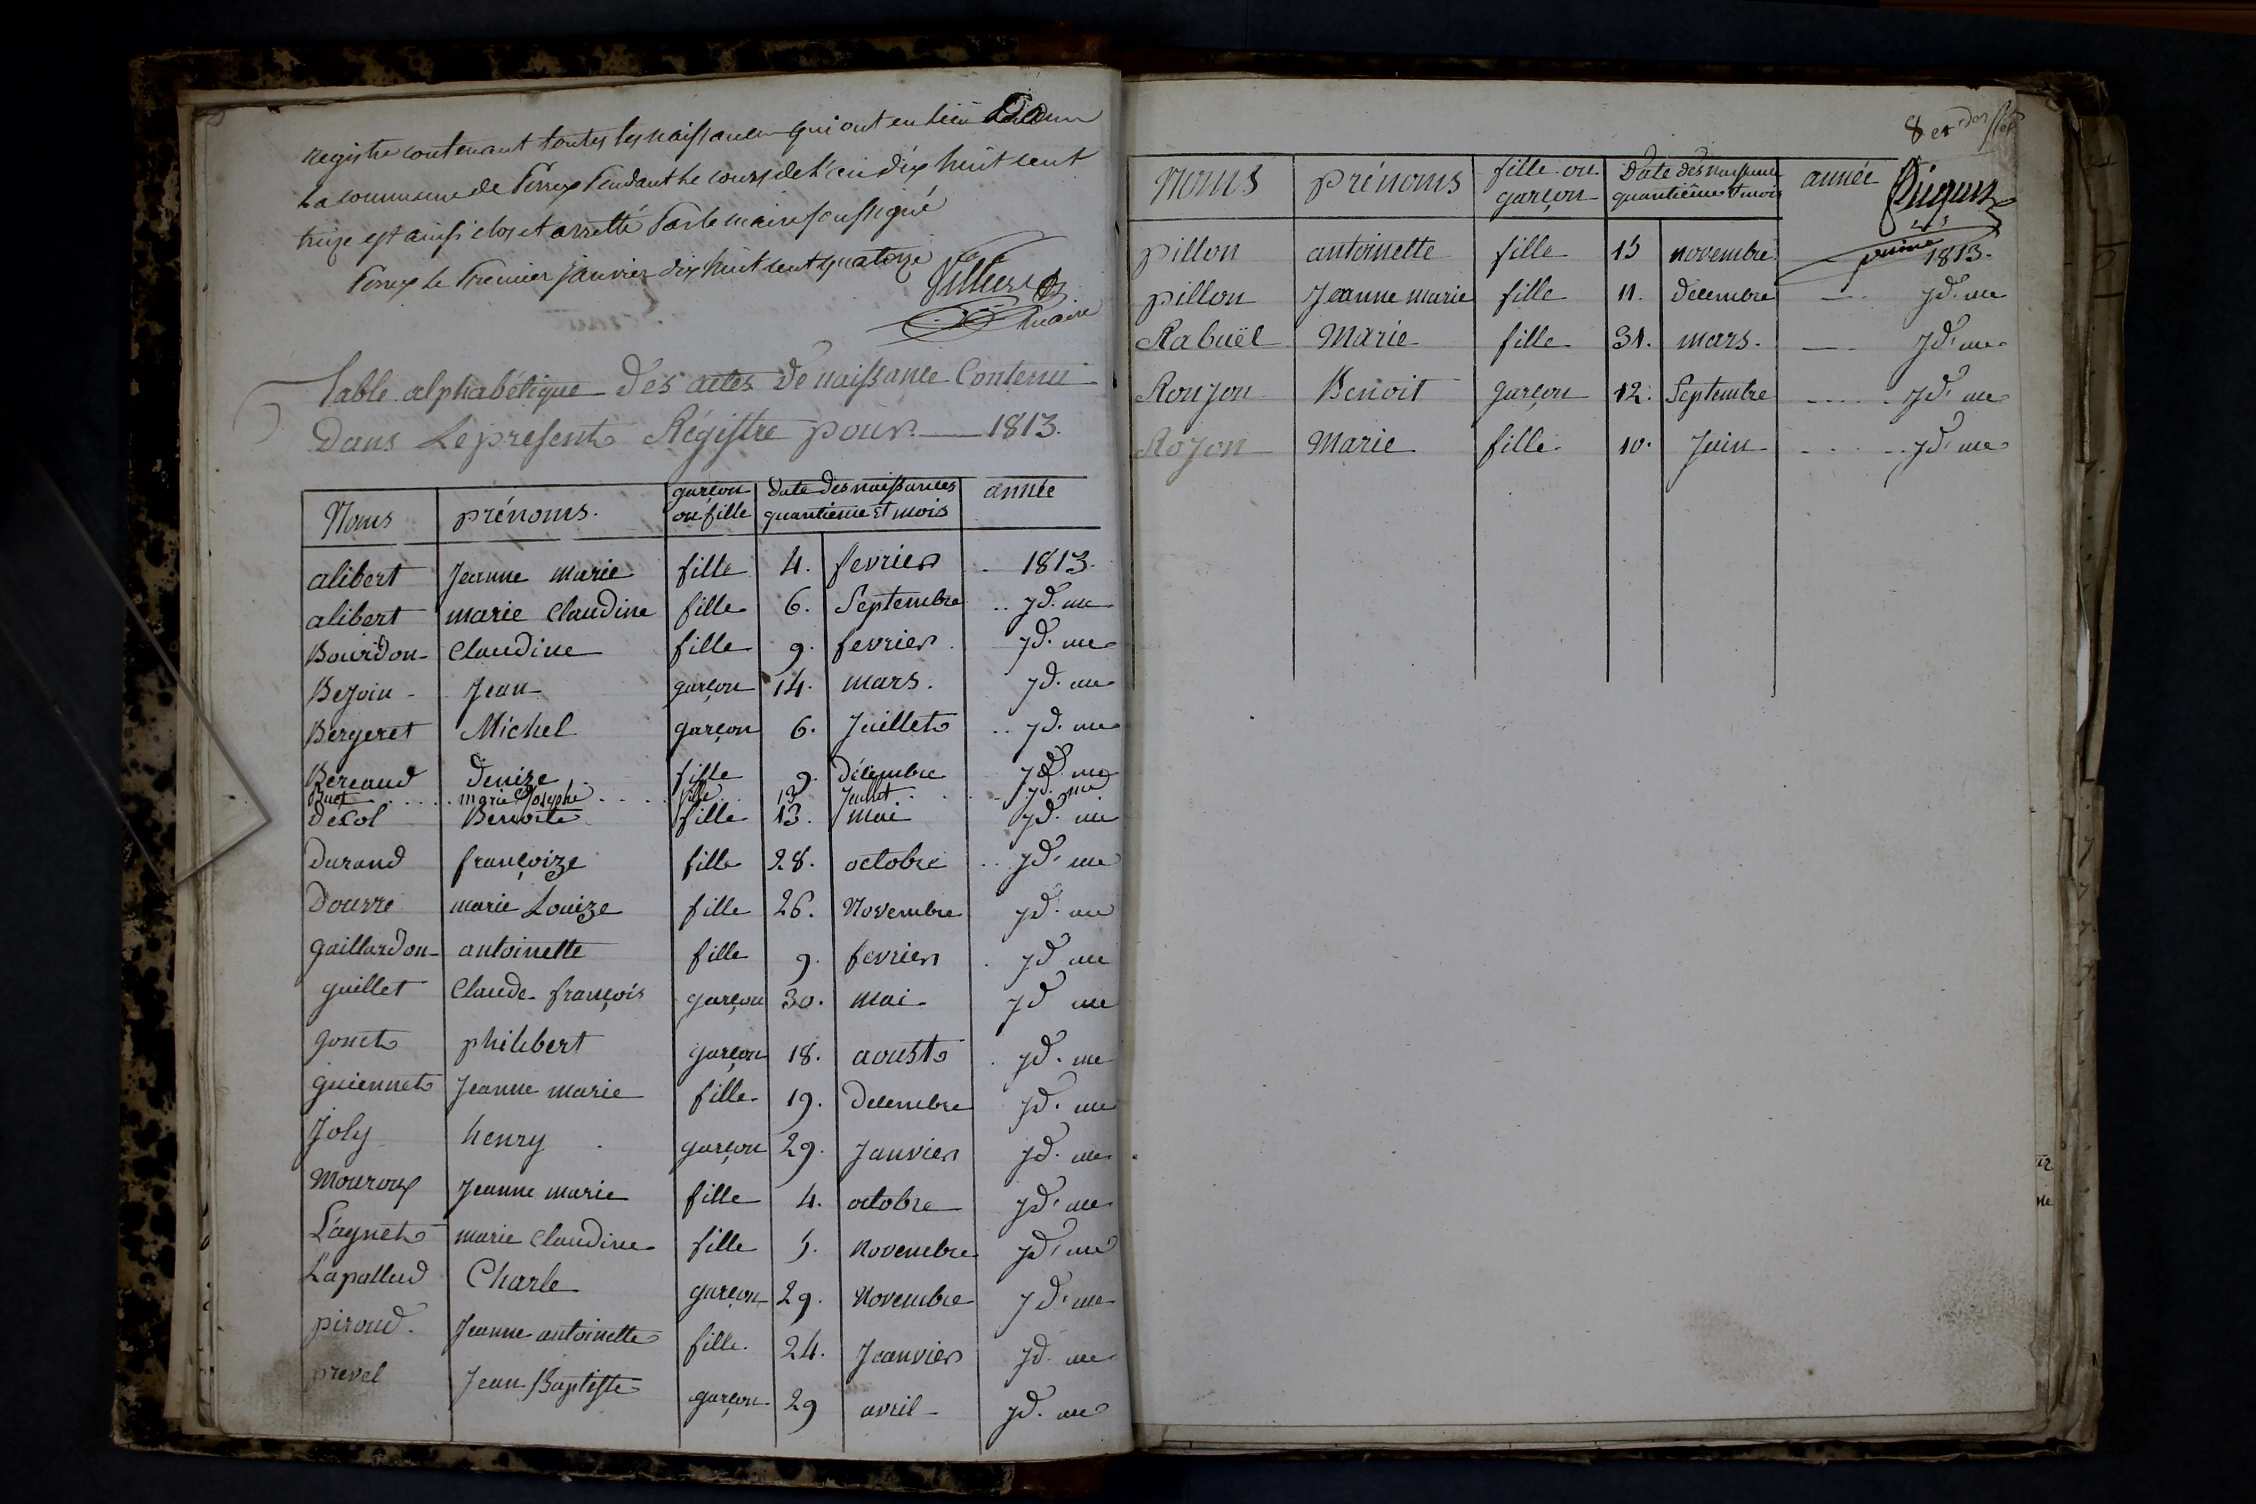 registre contenant toutes les naissances qui ont eu lieu dans
La commune de Perreux Pendant Le cours de L'an dix huit cent
treize est ainsi clos et arretté Par le maire soussigné
Perreux Le Premier janvier dix huit cent quatorze
Villiers
maire
Table alphabétique des actes de naissance Contenu
Dans Le present Régistre pour 1813.
Noms prénoms. garçon ou fille date des naissances quantieme et mois année
alibert Jeanne marie fille 4. fevrier 1813.
alibert marie Claudine fille 6. Septembre .. jd. me
Bourdon Claudine fille 9. fevrier. jd. me
Bejoin Jean garçon 14. mars. jd. me
Bergeret Michel garçon 6. Juillet .. jd. me
Bereaud denize fille 9. décembre jd. me
Buet marie Josephe fille 13 Juillet jd. me
decol Benoite fille 13. mai jd. me
Durand françoize fille 28. octobre .. jd. me
Dourre marie Louize fille 26. Novembre jd. me
gaillardon antoinette fille 9. fevrier . jd me
guillet Claude françois garçon 30. mai jd me
gonet philibert garçon 18. aoust . jd. me
guiennet Jeanne marie fille 19. decembre jd. me
Joly henry garçon 29. Janvier jd. me
Mouroux Jeanne marie fille 4. octobre jd. me
Lagnet marie Claudine fille 5. novembre jd. me
Lapallud Charle garçon 29. Novembre jd. me
piroud. Jeanne antoinette fille. 24. Janvier jd. me
prevel Jean Baptiste garçon 29 avril jd. me
8 et der
Noms prénoms fille ou garçon Date des naissances quantième et mois année
pillon antoinette fille 15 novembre 1813.
pillon Jeanne marie fille 11. décembre jd. me
Rabuël Marie fille 31. mars. jd. me
Ronjon Benoit garçon 12. Septembre jd. me
Rojon Marie fille 10. Juin jd. me